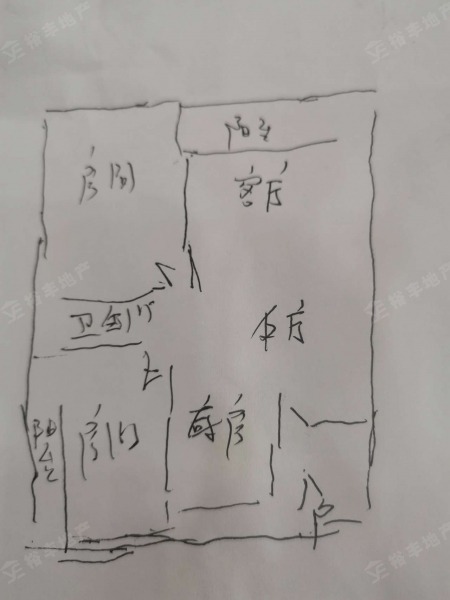 裕丰地产
裕丰地产
阳台
房间
客厅
裕丰地产
裕丰地产
卫生间
厨房
房间
阳台
裕丰地产
裕丰地产